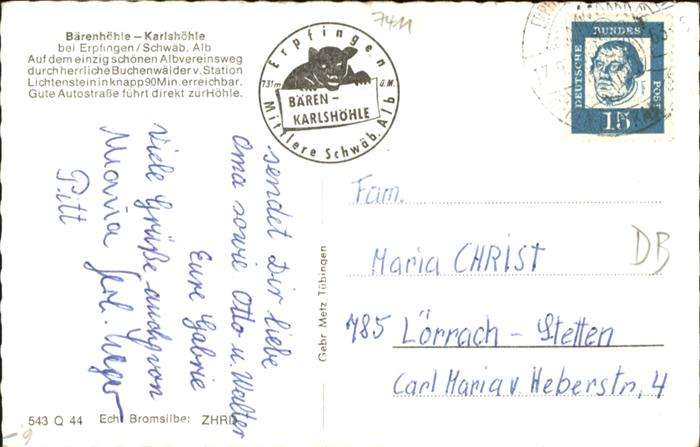 Bärenhöhle – Karlshöhle
bei Erpfingen / Schwäb. Alb
Auf dem einzig schönen Albvereinsweg
durch herrliche Buchenwälder v. Station
Lichtenstein in knapp 90 Min. erreichbar.
Gute Autostraße führt direkt zur Höhle.
7411
Erpfingen
731m ü.M.
BÄREN-
KARLSHÖHLE
Mittlere Schwäb. Alb
DEUTSCHE BUNDESPOST
15
sendet Dir liebe
Oma sowie Otto u. Walter
Eure Gabrie
Viele Grüße auch von
Pitt
Gebr Metz Tübingen
Fam.
Maria CHRIST
DB
785 Lörrach – Stetten
Carl Maria v. Heberstr, 4
543 Q 44 Echt Bromsilber ZHRD